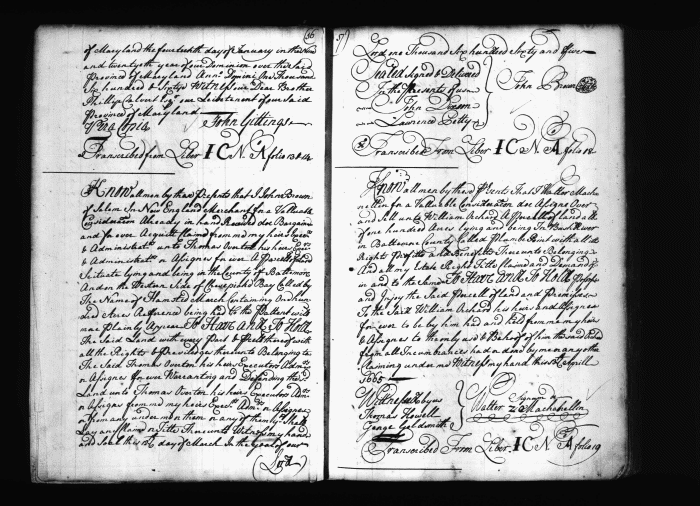 56
of Maryland the fourteenth day of January in the Nine
and twentyeth year of our Dominion over the said
Province of Maryland Anno Domini One Thousand
Six hundred & Sixty Witness our Dear Brother
Phillip Calvert Esqr our Lieutenant of our Said
Province of Maryland
Vera Copia John Gittings
Transcribed from Liber I C N. A folio 13 & 14
Know all men by these Presents that I John Brown
of Salem In New England Merchant for a Valluable
Consideration Already in hand Received doe Bargaine
and for ever Acquitt claime from me my heirs Execrs
& Administrs unto Thomas Overton his heirs Extrs
& Administrs or Assignes for ever A parcell of Land
Scituate lying and being in the County of Baltimore
And on the Western Side of Chesepiack Bay Called by
The Name of Hamsted March Containing One hun-
and Acres Reference being had to the Pattent will
mae Plainly Appeare To Have and To Hold
The Said Land with every Part & Parcell thereof with
all the Rights & Priviledges thereunto Belonging to
The Said Thomas Overton his heirs Executors Admrs
or Assignes for ever Warranting and Defending the Sd
Land unto Thomas Overton his heirs Executors Admrs
or Assignes from me my heirs Execrs Admrs or Assignes
or from any under mee them or any of them
Lay any Claime or Title Thereunto Witness my hand
and Seal this 12th day of March In the Year of our
Lord
57
Lord one Thousand Six hundred Sixty and
Sealed Signed & Delivered
In the Presents of us John Brown
John Dixon
Lawrence
Transcribed From Liber I C. N. A folio 18
Know all men by these Presents That I Walter Mack-
nellin for a Valluable Consideration doe Assigne Over
and Sell unto William Orchard A Parcell of Land all
One hundred Acres lying and being In Bush River
in Baltemore County Called Plumb Point with all the
Right Profitts and Benefitts Thereunto Belonging
And all my Estate Right Title Claime and Demand of
in and to the Same To Have and To Hold Possess
and Injoy the Said Parcell of Land and Premisses
To the Said William Orchard his heirs and Assignes
for ever to be by him had and held from me my heirs
& Assignes to the only use & Behoof of him
from all Incumbrances had or done by me or any other
Claiming under me Witness my hand this 12 Aprill
1665
Witness
Thomas Howell Signum
George Goldsmith Walter Z Mackellin
Transcribed From Liber I C N A folio 19